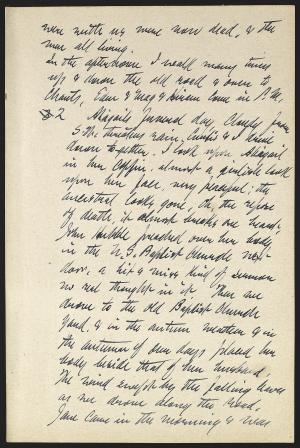 were with us were now dead, & the
men all living.
In the afternoon I walk many times
up & down the old road & over to
Chants, Eden & Mag & Hiram came in P.M.
2 Abigail's funeral day, Cloudy from
S. threatens rain, & I drive
down together. I look upon Abigail
in her Coffin, almost a girlish look
upon her face, very peaceful; the
ancestral looks gone, oh, the repose
of death, it almost breaks one's heart.
John Hibble preached over her body
in the O.S. Baptist Church next
door. a hit & miss kind of sermon
no real thought in it. Then we
drove to the old Baptist Church
Yard, & in the autumn weather & in
the autumn of our days placed her
body beside that of her husband,
The wind swept by the falling leaves
as we drove along the road.
Jane came in the morning & was